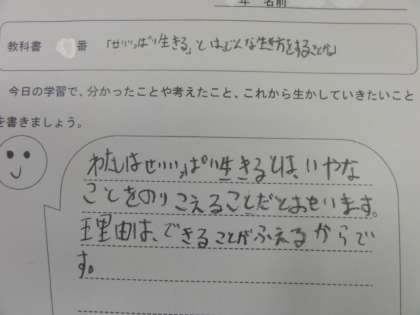 年 名前
教科書 番 「せいいっぱい生きる」とはどんな生き方をすることか
今日の学習で、分かったことや考えたこと、これから生かしていきたいこと
を書きましょう。
わたしはせいいっぱい生きるとは、いやな
ことをのりこえることだとおもいます。
理由は、できることがふえるからで
す。